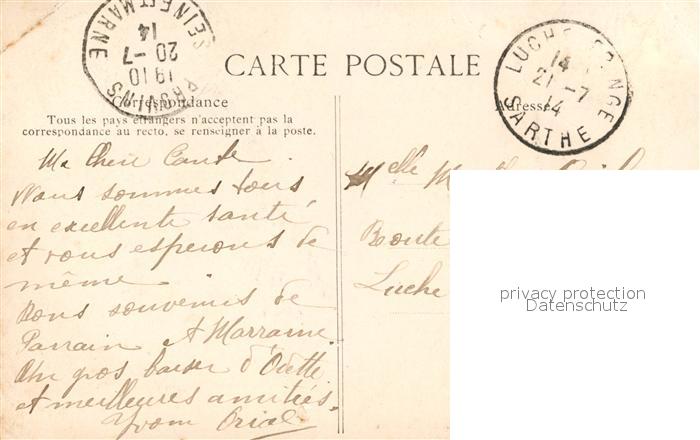 PROVINS
SEINE ET MARNE
1910
20-7
14
CARTE POSTALE
LUCHE PRINGE
14
21-7
14
SARTHE
Correspondance
Adresse
Tous les pays étrangers n'acceptent pas la
correspondance au recto, se renseigner à la poste.
Ma chère
Nous sommes tous
en excellente santé
et vous esperons de
même.
Bons souvenirs de
Parrain et Marraine.
Un gros baiser d'Odette
et meilleures amitiés.
Melle
Route
Luche
privacy protection
Datenschutz